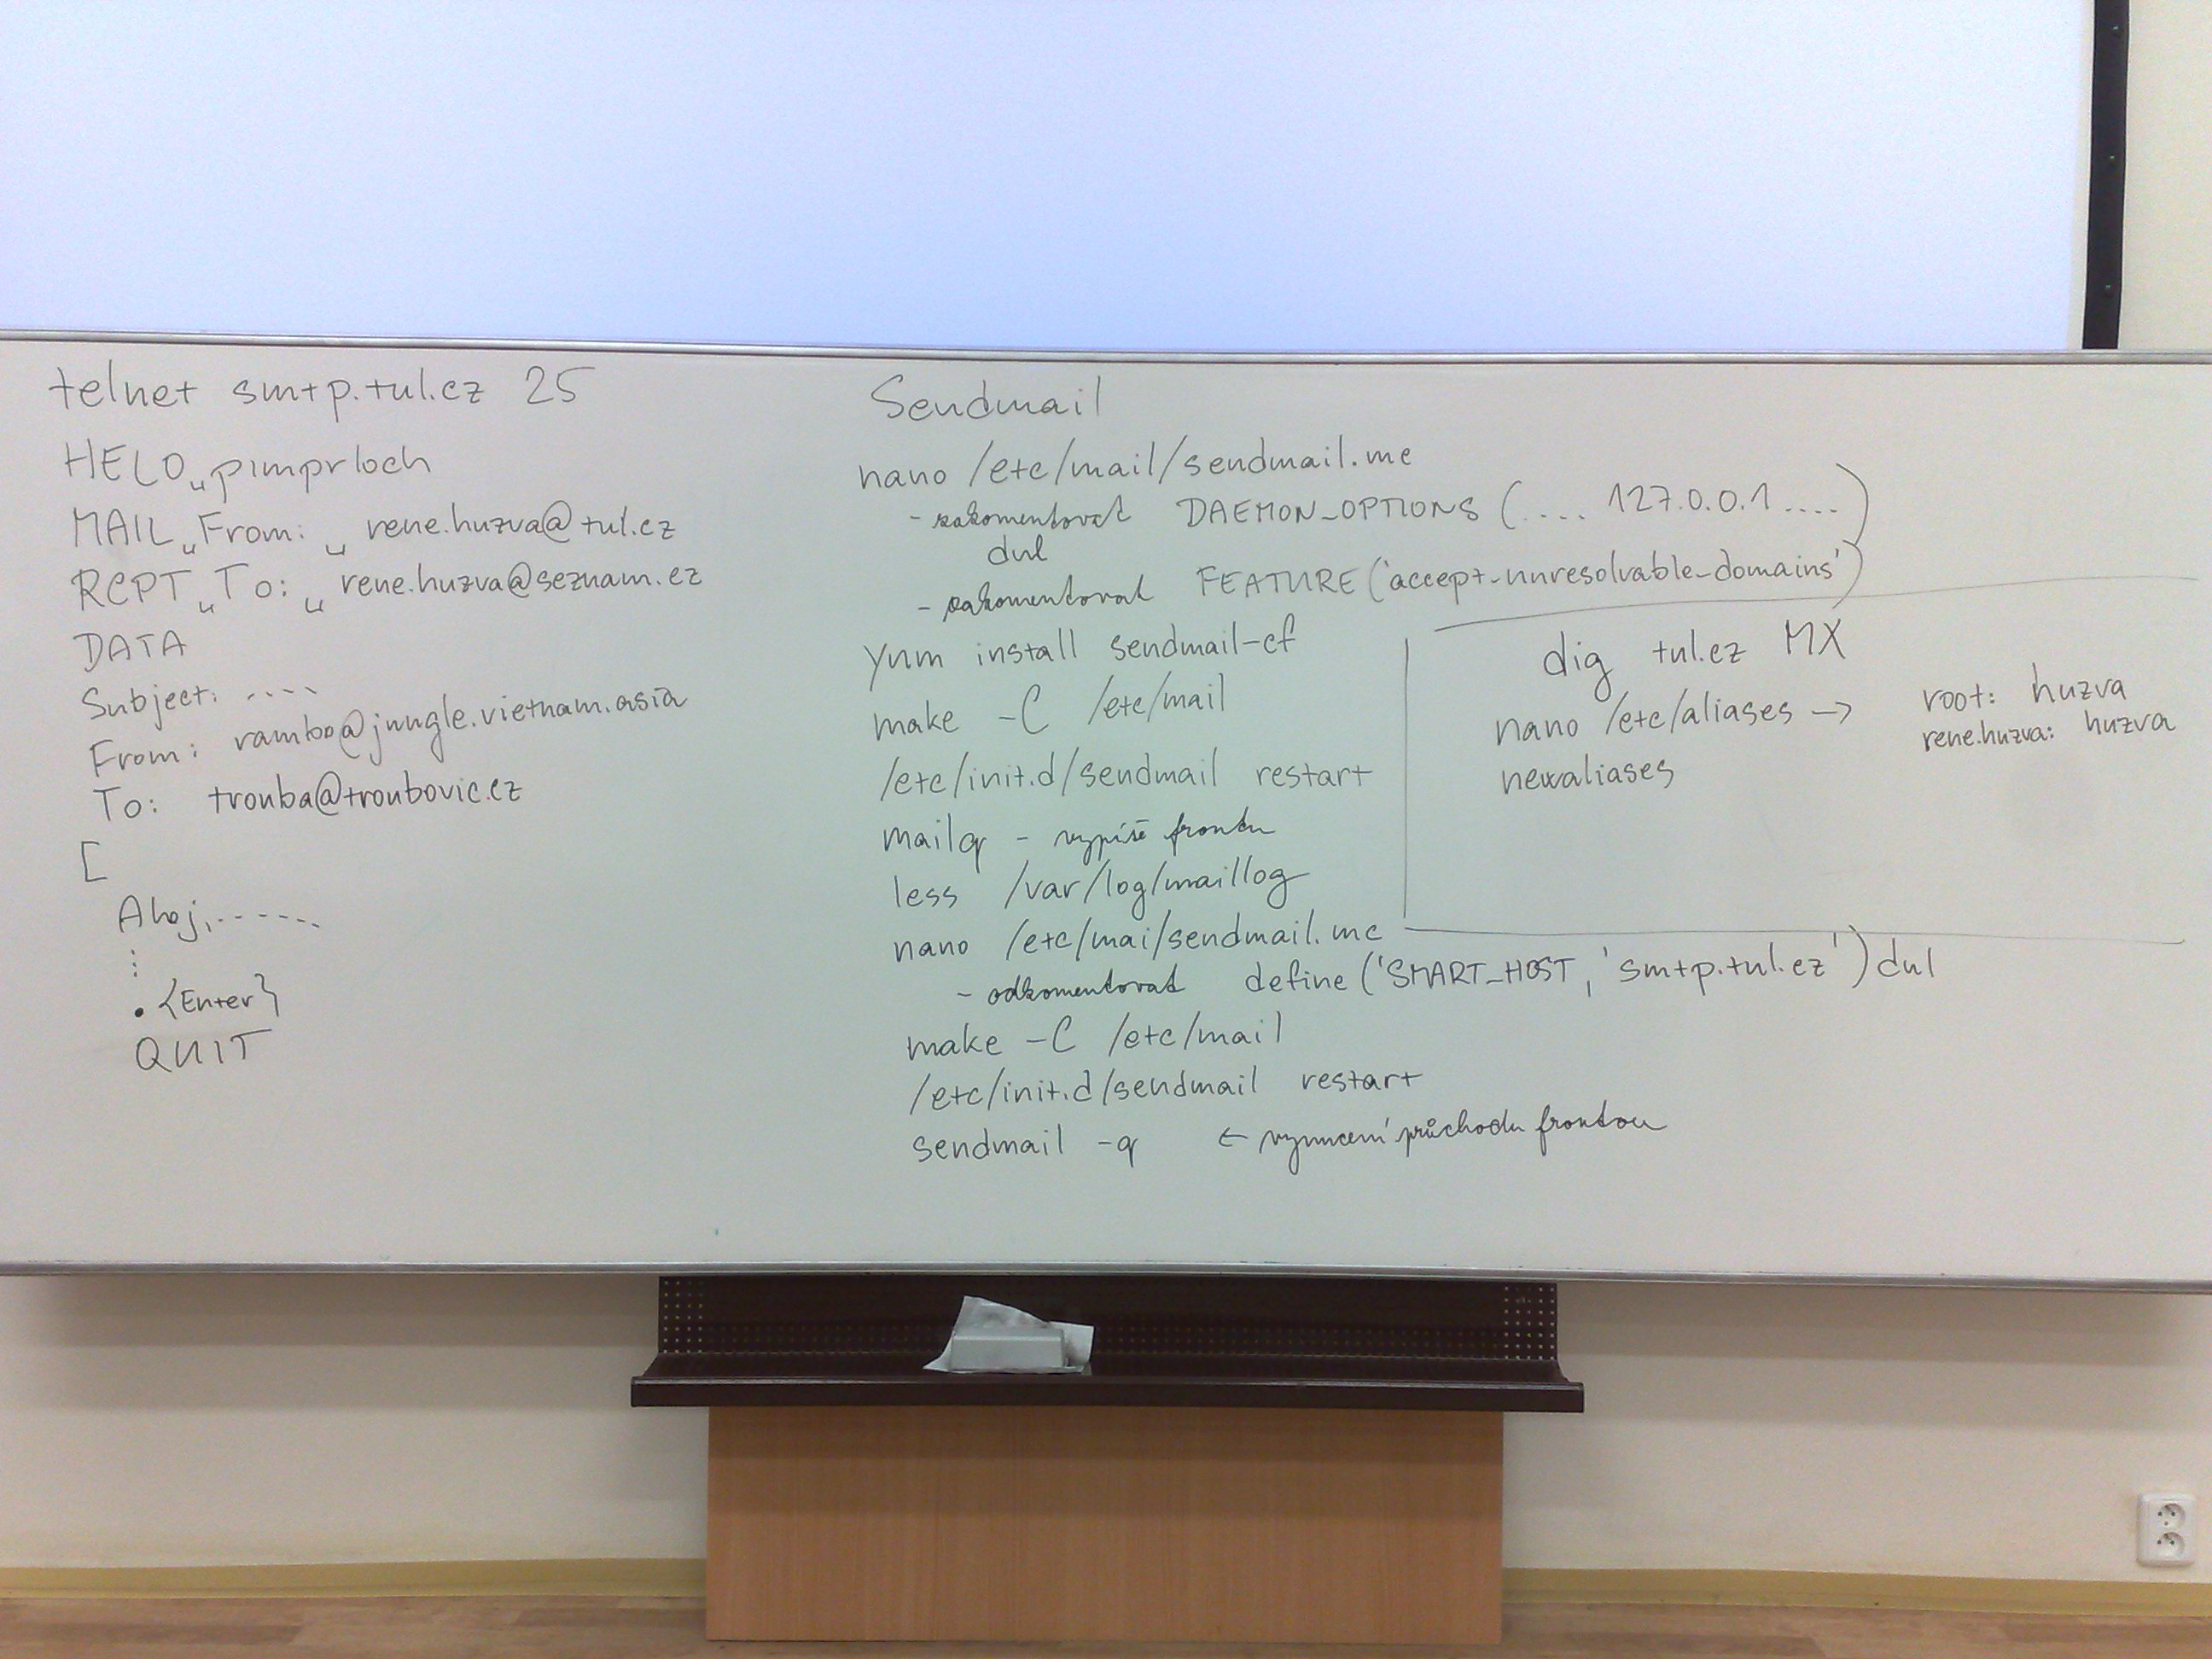 telnet smtp.tul.cz 25
HELO␣pimprloch
MAIL␣From:␣rene.huzva@tul.cz
RCPT␣To:␣rene.huzva@seznam.cz
DATA
Subject: ....
From: rambo@jungle.vietnam.asia
To: trouba@troubovic.cz
[
Ahoj,......
⋮
• {Enter}
QUIT
Sendmail
nano /etc/mail/sendmail.mc
- zakomentovat DAEMON_OPTIONS (.... 127.0.0.1 ....)
dul
- zakomentovat FEATURE('accept_unresolvable_domains')
yum install sendmail-cf
make -C /etc/mail
/etc/init.d/sendmail restart
mailq - vypíše frontu
less /var/log/maillog
nano /etc/mai/sendmail.mc
- odkomentovat define('SMART_HOST, 'smtp.tul.cz') dul
make -C /etc/mail
/etc/init.d/sendmail restart
sendmail -q ← vynucení průchodu frontou
dig tul.cz MX
nano /etc/aliases → root: huzva
rene.huzva: huzva
newaliases